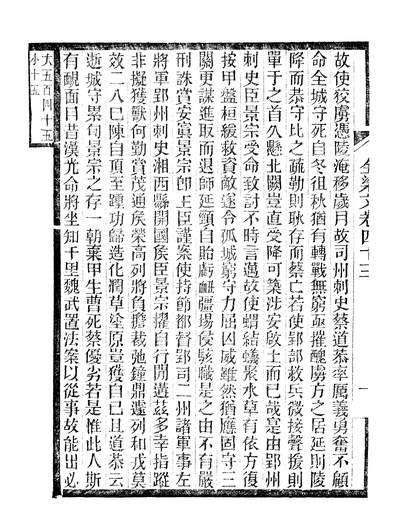 全梁文卷四十三 一
故使狡虜憑陵淹移歲月故司州刺史蔡道恭率厲義勇奮不顧
命全城守死自冬徂秋猶有轉戰無窮亟摧醜虜方之居延則陵
降而恭守比之疏勒則耿存而蔡亡若使郢部救兵微接聲援則
單于之首久懸北闕豈直受降可築涉安啟土而已哉寔由郢州
刺史臣景宗受命致討不時言邁故使蝟結蟻聚水草有依方復
按甲盤桓緩救資敵遂令孤城窮守力屈凶威雖然猶應固守三
關更謀進取而退師延頸自貽虧衂疆埸侵駭職是之由不有嚴
刑誅賞安寘景宗即主臣謹案使持節都督郢司二州諸軍事左
將軍郢州刺史湘西縣開國侯臣景宗擢自行閒遘茲多幸指蹤
非擬獲獸何勤賞茂通侯榮高列將負擔裁弛鐘鼎遽列和戎莫
效二八已陳自頂至踵功歸造化潤草塗原豈獲自已且道恭云
逝城守累旬景宗之存一朝棄甲生曹死蔡優劣若是惟此人斯
有靦面目昔漢光命將坐知千里魏武置法案以從事故能出必
大五百四十五
小十五